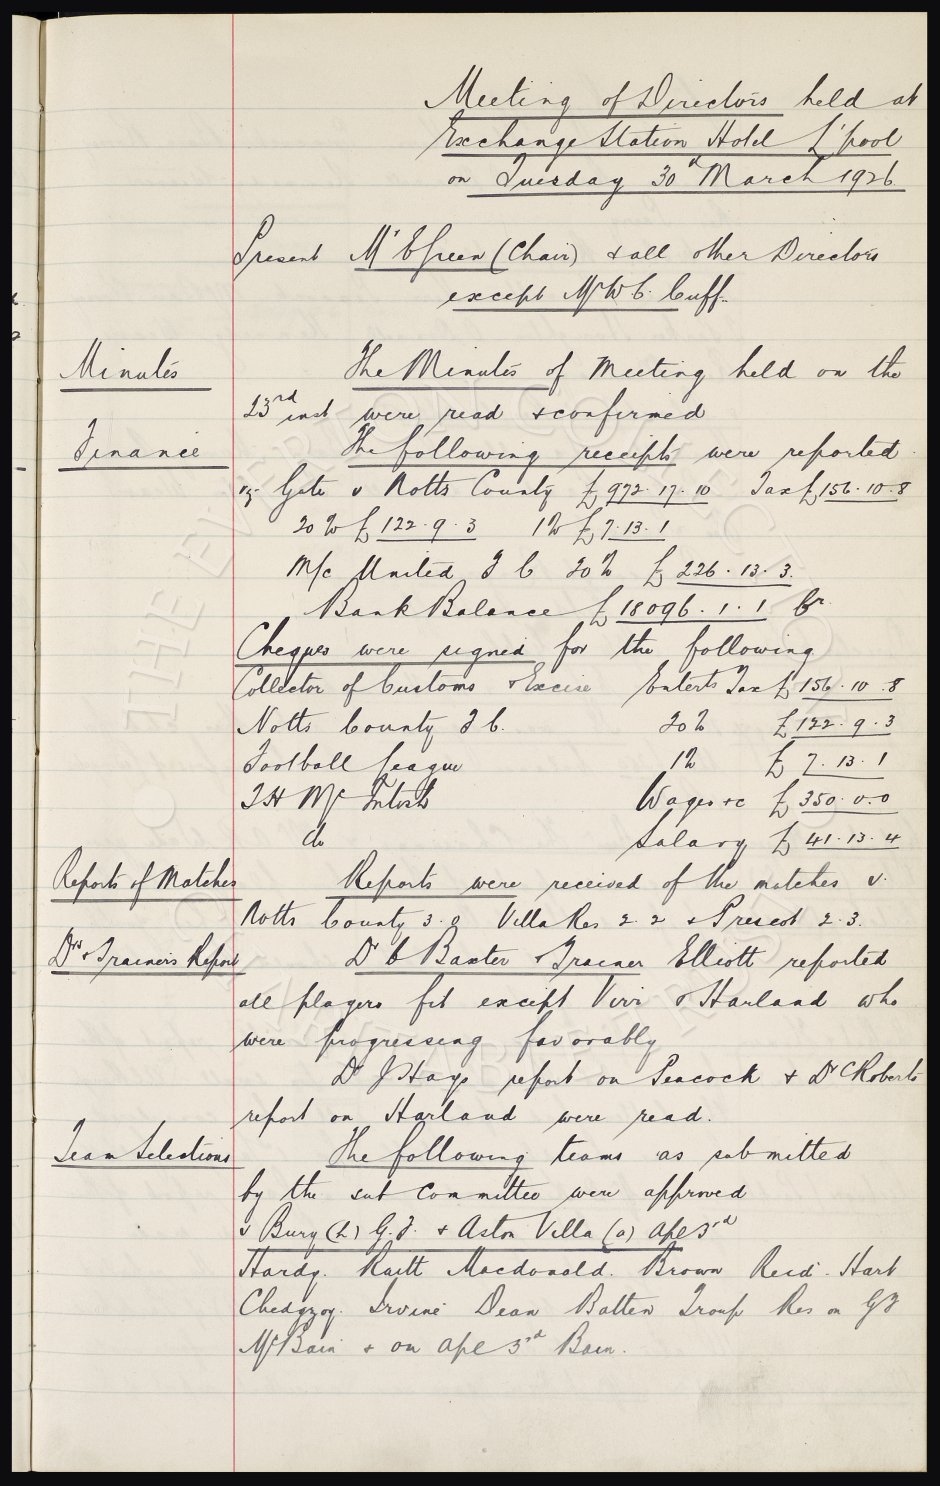 Meeting of Directors held at
Exchange Station Hotel L'pool
on Tuesday 30th March 1926
Present Mr E Green (Chair) & all other Directors
except Mr W C. Cuff.
Minutes
The Minutes of Meeting held on the
23rd inst were read & confirmed
Finance
The following receipts were reported
vz- Gate v Notts County £972.17.10 Tax £156.10.8
20% £122.9.3 1% £7.13.1
M/c United F C 20% £226.13.3.
Bank Balance £18096.1.1 Cr.
Cheques were signed for the following
Collector of Customs & Excise Enterts Tax £156.10.8
Notts County F C. 20% £122.9.3
Football League 1% £7.13.1
T H McIntosh Wages &c £350.0.0
do Salary £41.13.4
Reports of Matches
Reports were received of the matches v.
Notts County 3.0 Villa Res 2.2 & Prescot 2.3.
Drs & Trainers Report
Dr C Baxter & Trainer Elliott reported
all players fit except Virr & Harland who
were progressing favorably
Dr J Hays report on Peacock & Dr C Roberts
report on Harland were read.
Team Selections
The following teams as submitted
by the sub committee were approved
v Bury (h) G.F. & Aston Villa (a) Apl 3rd
Hardy. Raitt Macdonald. Brown Reid. Hart
Chedgzoy. Irvine Dean Batten Troup Res on GF
McBain & on Apl 3rd Bain.